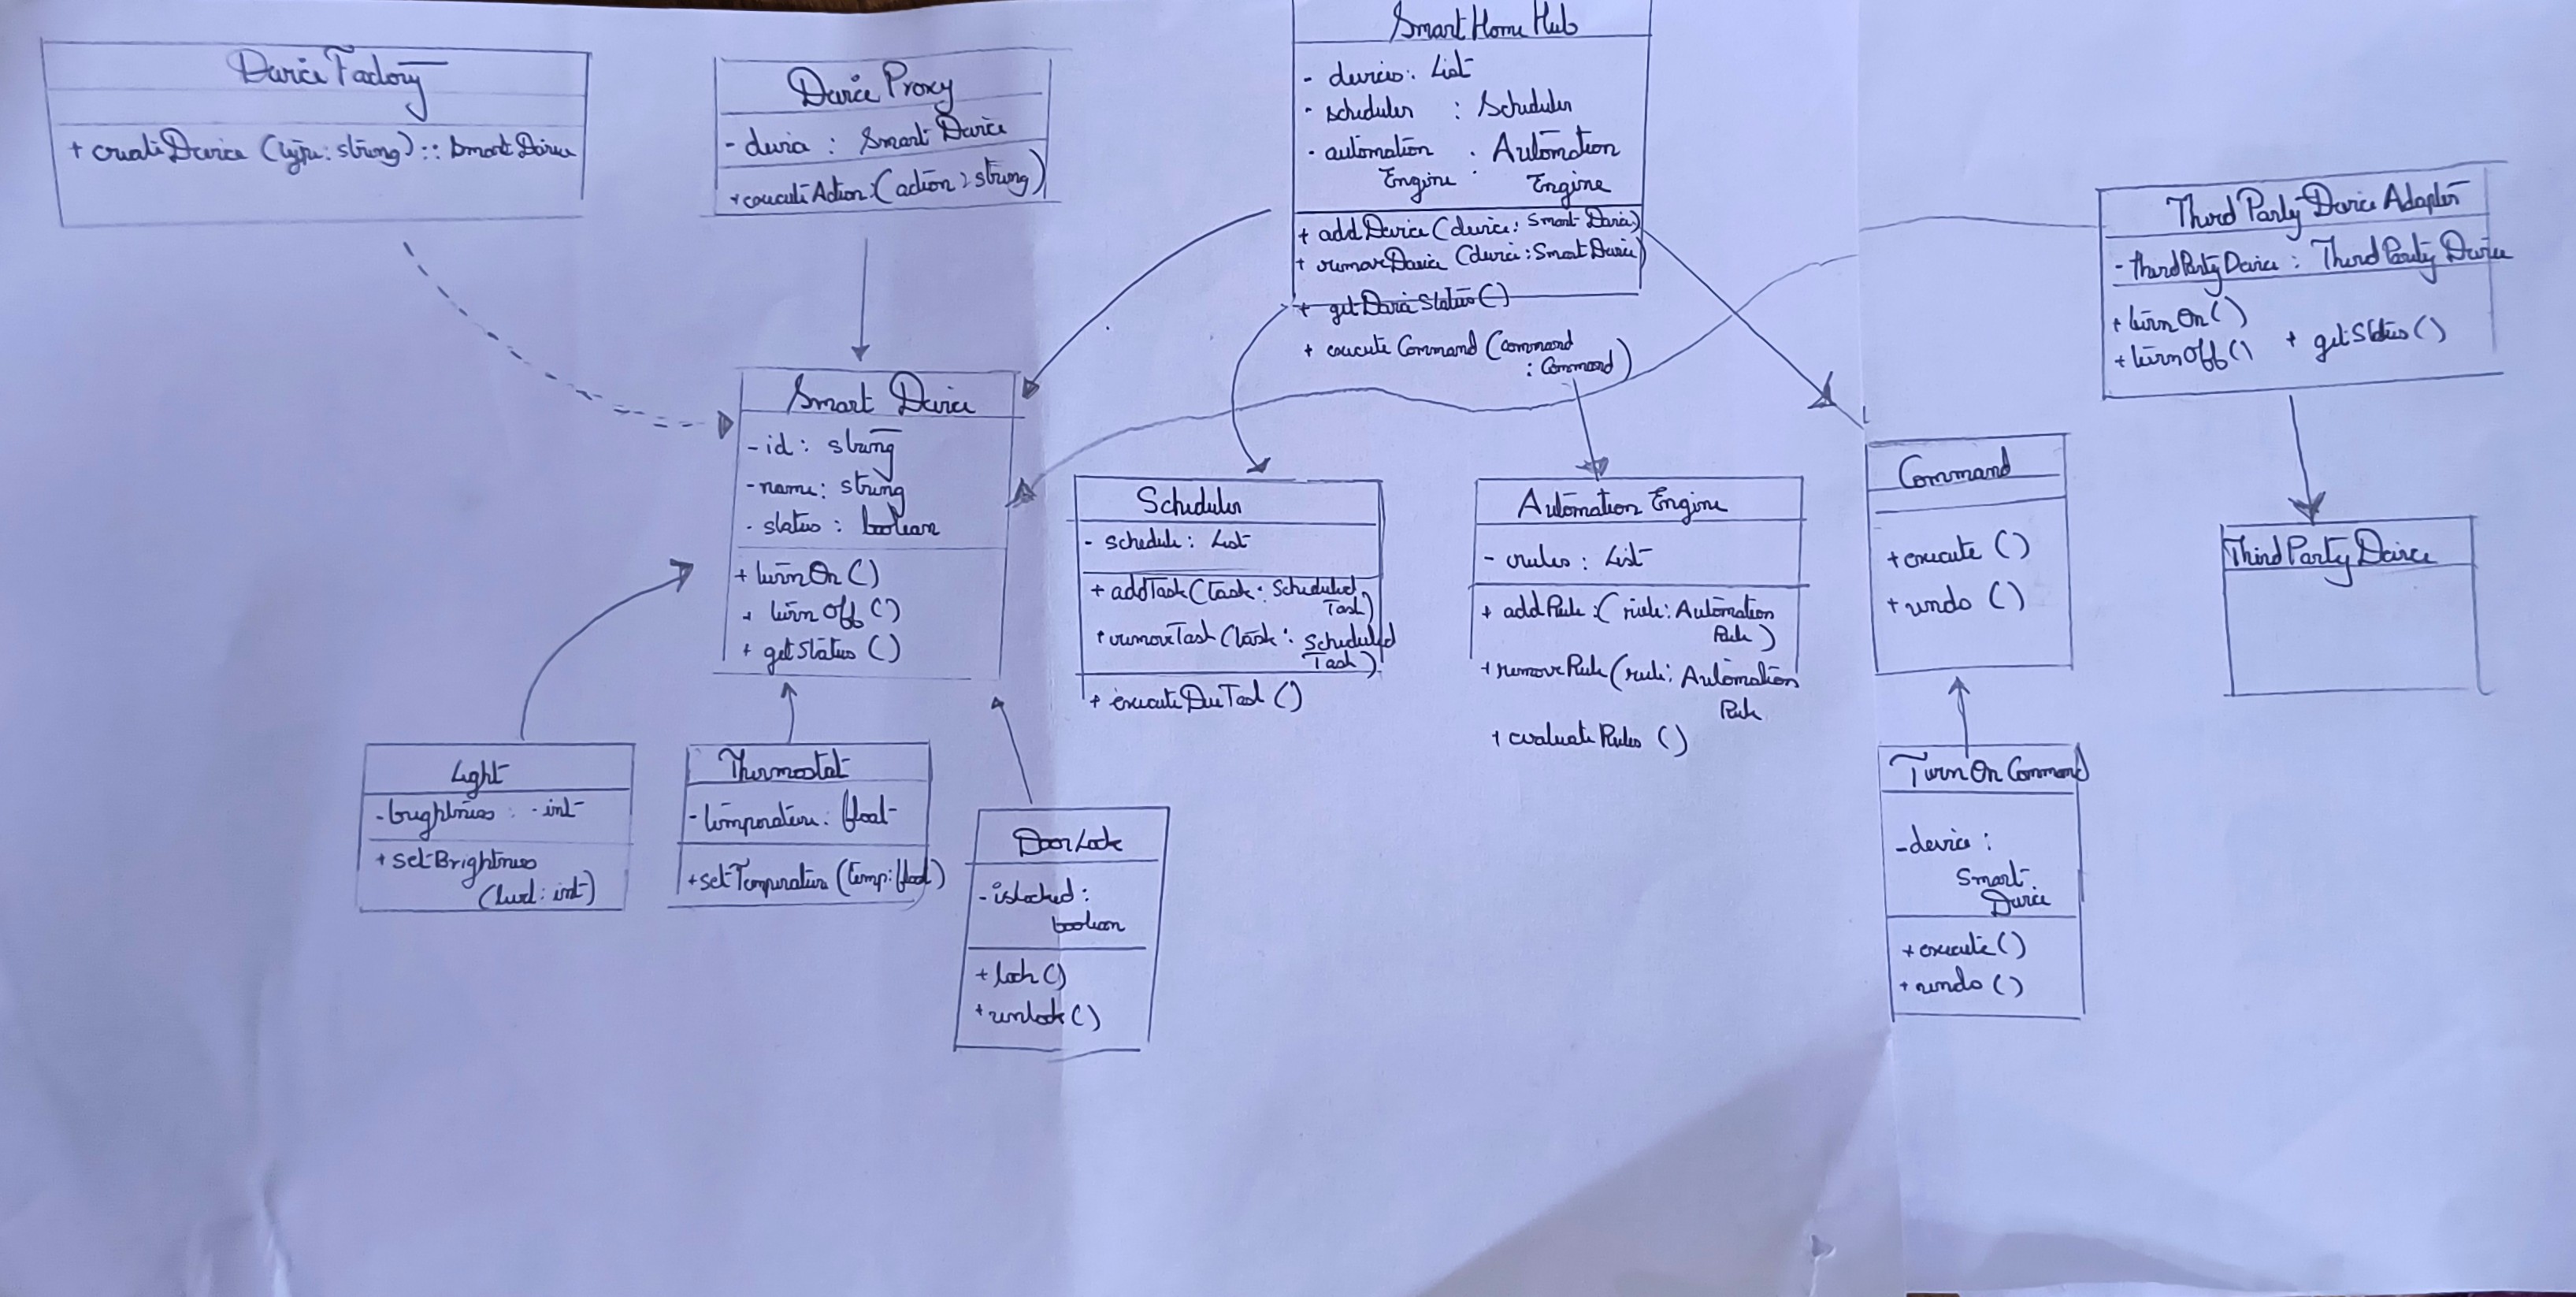 Device Factory
+ createDevice (type: string) :: SmartDevice
Device Proxy
- device : Smart Device
+ executeAction: (action : string)
Smart Home Hub
- devices: List
- scheduler : Scheduler
- automation : Automation
Engine Engine
+ addDevice (device: Smart Device)
+ removeDevice (device: Smart Device)
+ getDeviceStatus ()
+ execute Command (command
: Command)
Third Party Device Adapter
- thirdPartyDevice : Third Party Device
+ turnOn ()
+ turnOff () + getStatus ()
Smart Device
- id : string
- name: string
- status : boolean
+ turnOn ()
+ turnOff ()
+ getStatus ()
Scheduler
- schedule: List
+ addTask (task: Scheduled
Task)
+ removeTask (task: Scheduled
Task)
+ executeDueTask ()
Automation Engine
- rules: List
+ addRule :( rule: Automation
Rule )
+ removeRule (rule: Automation
Rule
+ evaluateRules ()
Command
+ execute ()
+ undo ()
ThirdPartyDevice
Light
- brightness : - int
+ setBrightness
(level: int)
Thermostat
- temperature: float
+ setTemperature (temp: float)
DoorLock
- isLocked :
boolean
+ lock ()
+ unlock ()
TurnOn Command
- device :
Smart
Device
+ execute ()
+ undo ()